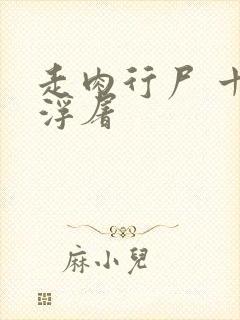 走肉行尸 十
浮屠
麻小兒